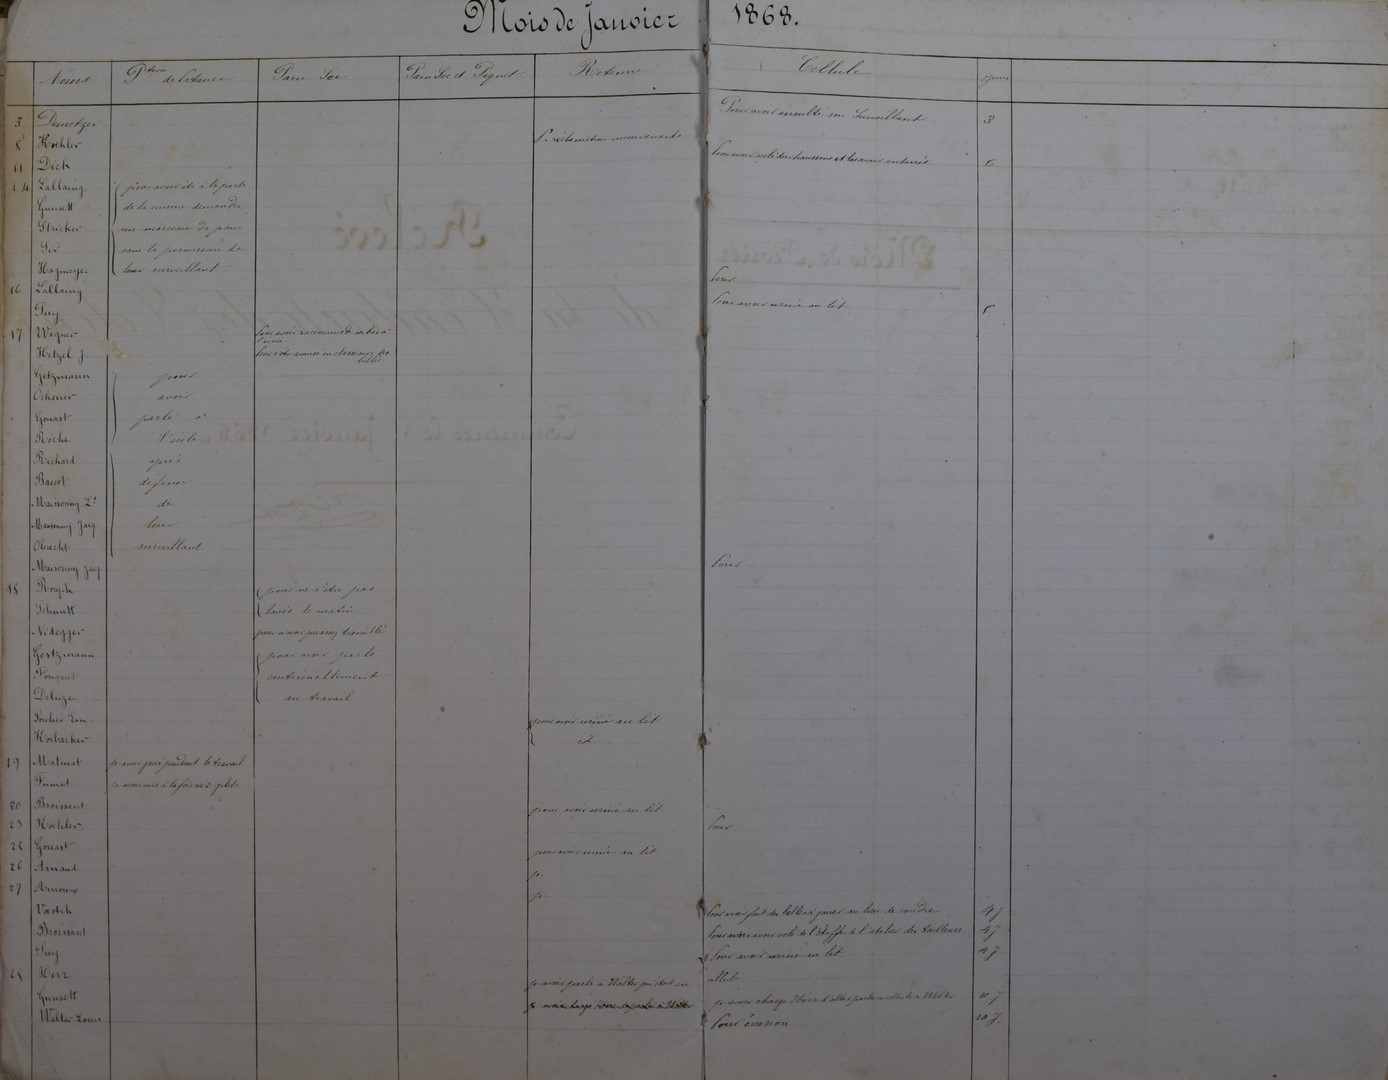 Mois de Janvier 1868.
Noms Pon de Séance Pain Sec Pain Sec et Piquet Retenue Cellule jours
3 Demetzer Pour avoir insulté son Surveillant 3
8 Koehler P. réclamation inconvenante
11 Dick Pour avoir volé des chaussons et les avoir enterrés 6
14 Lallaing pour avoir été à la porte
Gunsett de la cuisine demander
Stricher un morceau de pain
sans la permission de
Hagmeyer leur surveillant
16 Lallaing Pour
Puy Pour avoir uriné au lit 8
17 Wagner
Hetzel J.
Getzmann pour
Ochsner avoir
Gouart parlé à
Roche l'école
Richard après
Bacot défense
Maisonny de
Maisonny Jacq leur
Obrecht surveillant
Maisonny Jacq Pour
18 Roesch pour ne s'être pas
Schmitt lavés le matin
Nidegger pour n'avoir pas assez travaillé
Gertzmann pour avoir parlé
Fouquet continuellement
Deluze au travail
pour avoir uriné au lit
Horbacher id
19 Matinat p. avoir joué pendant le travail
Fumat
20 Broissent pour avoir uriné au lit
23 Koehler Pour
26 Gouart pour avoir uriné au lit
26 Arnaud p.
27 Arnoux p.
Voetsch Pour avoir fait des balles à jouer au lieu de coudre 4 J
Broissant Pour avoir volé de l'étoffe à l'atelier des tailleurs 4 J
Puy Pour avoir uriné au lit 4 J
28 Herr p. avoir parlé à Walter qui était en cellule
Gunsett p. avoir chargé Herr d'aller parler en cellule à Walter 10 J
Walter Louis Pour évasion 10 J